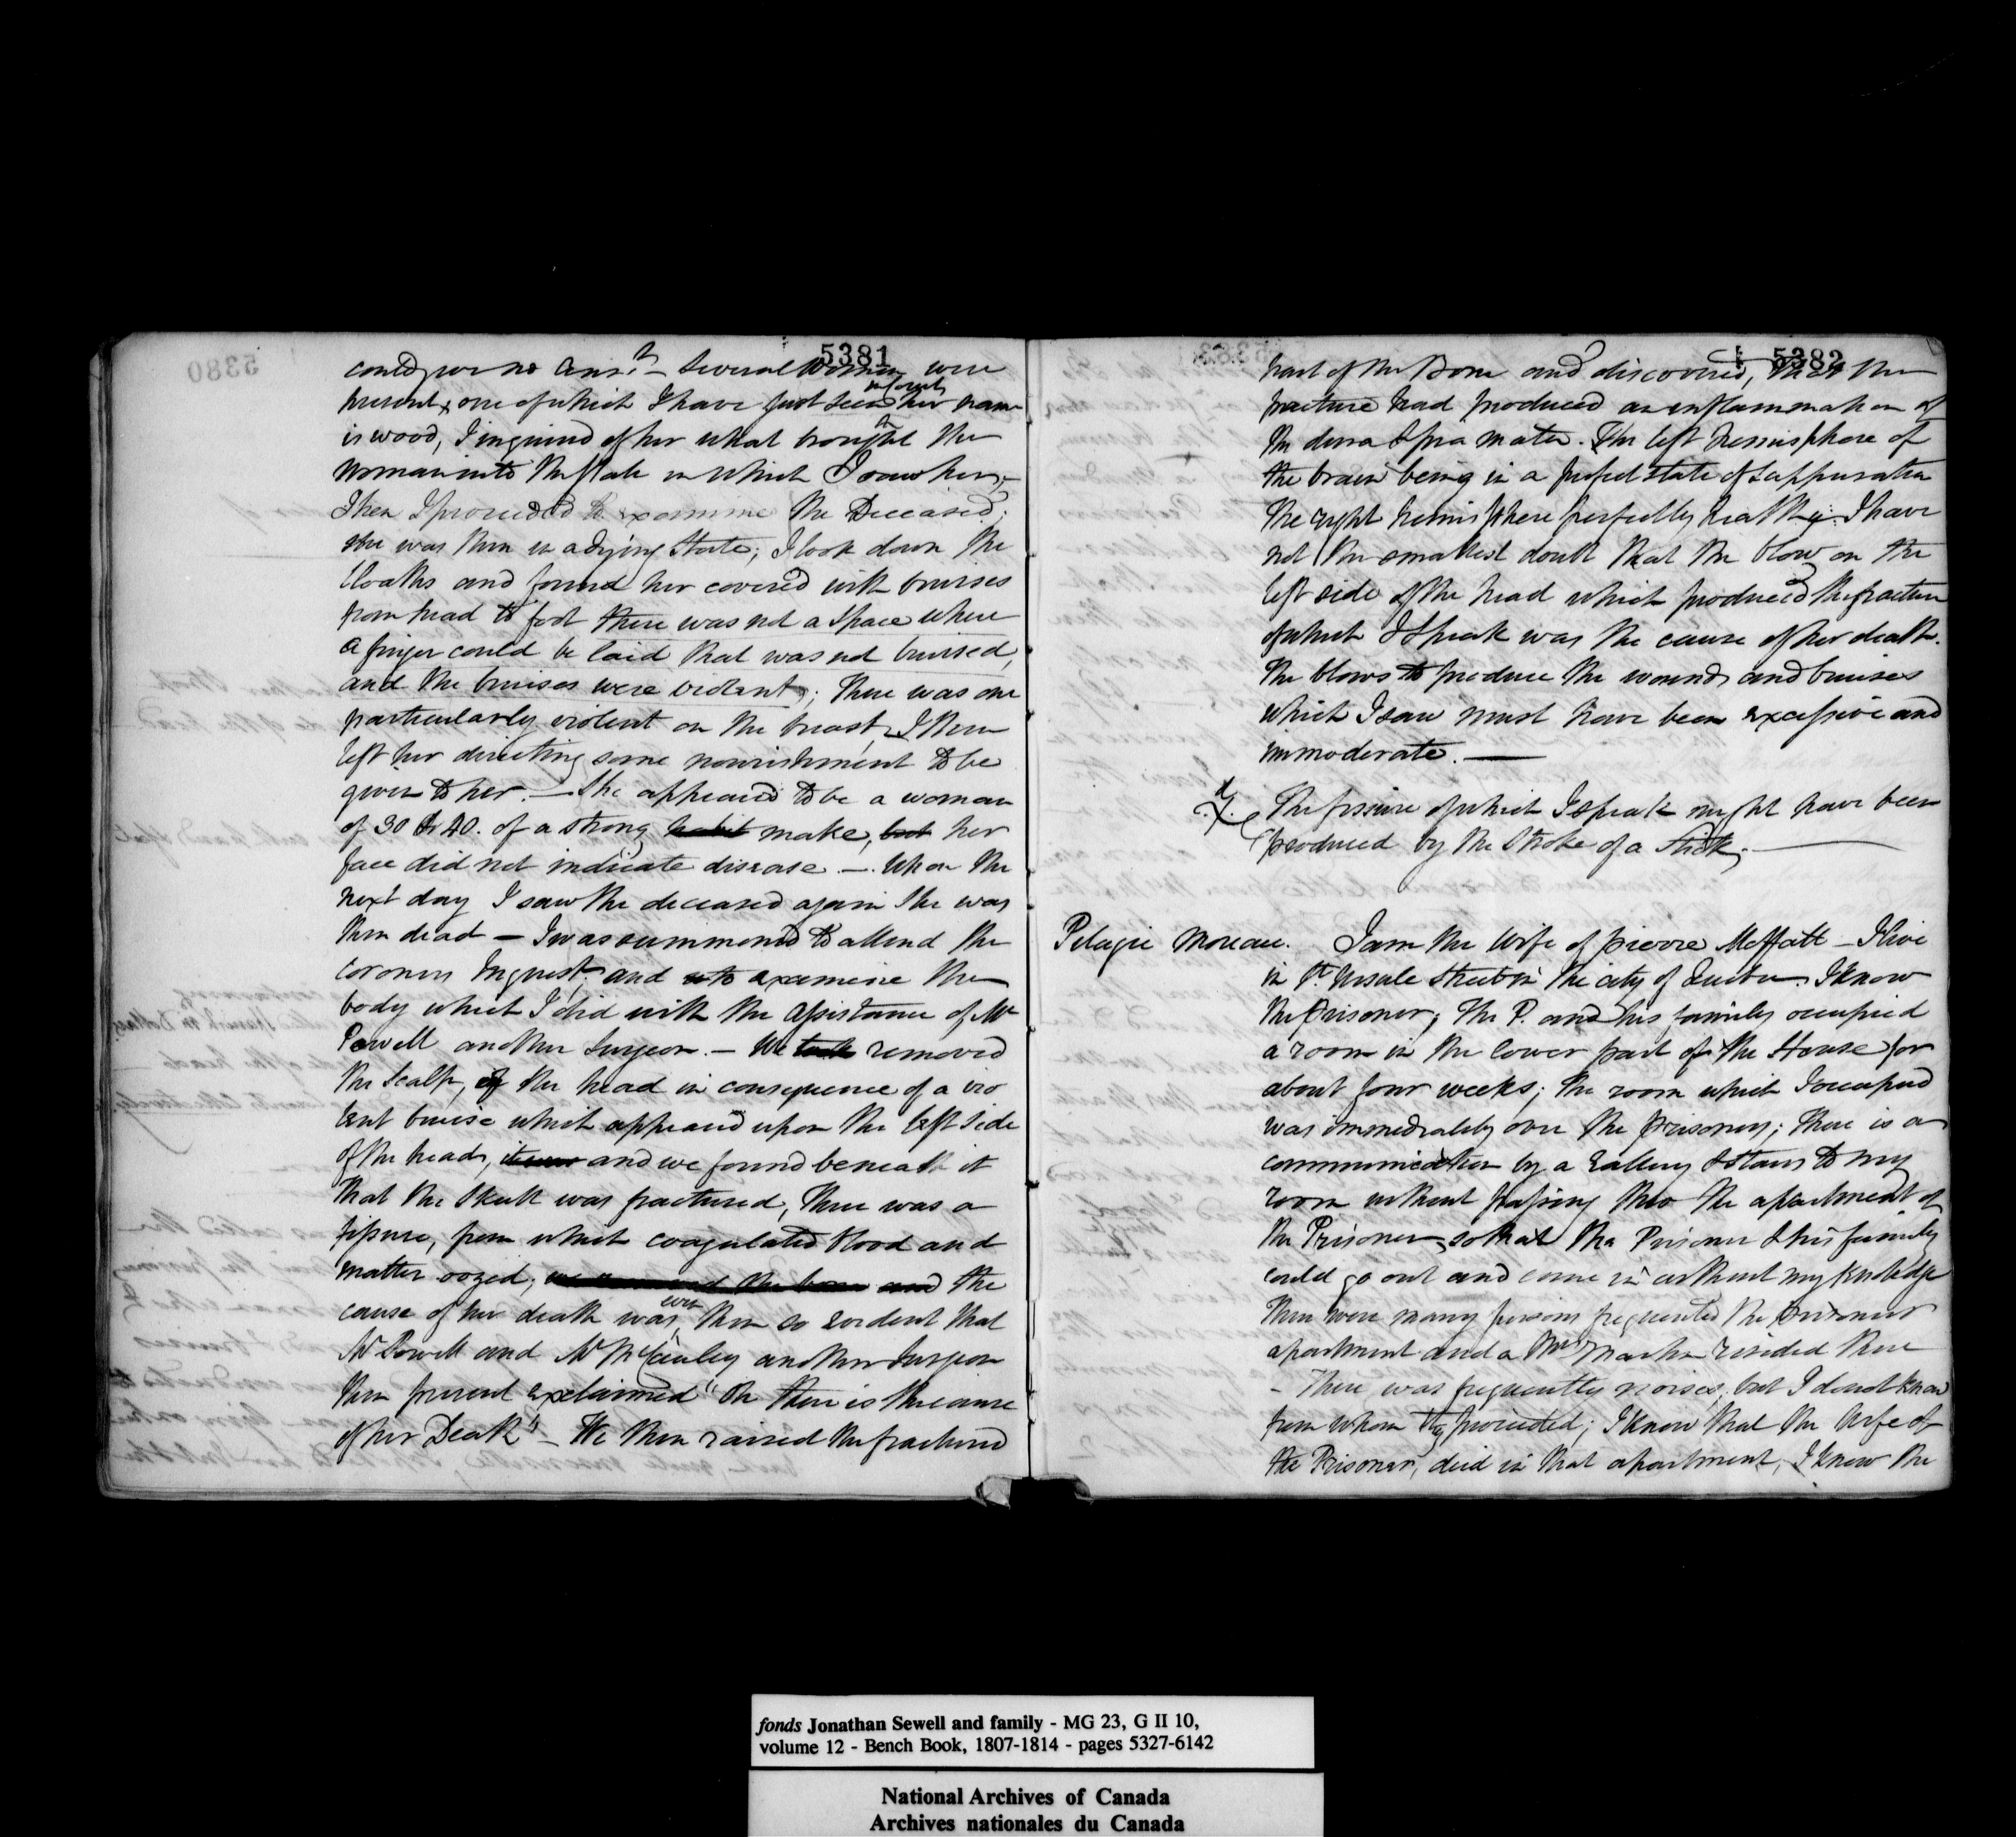 5381
could give no Ansr. – Several women were
present & one of which I have just seen in Court her name
is wood, I inquired of her what brought the
woman into the state in which I saw her, –
Then I proceeded to examine the Deceased;
she was then in a dying State; I took down the
Cloaths and found her covered with bruises
from head to foot there was not a space where
a finger could be laid that was not bruised,
and the bruises were violent; There was one
particularly violent on the breast, I then
left her directing some nourishment to be
given to her. – She appeared to be a woman
of 30 to 40. of a strong habit make, but her
face did not indicate disease. – When the
next day I saw the deceased again she was
then dead – I was summoned to attend the
Coroners Inquest and to examine the
body which I did with the assistance of Mr
Powell another Surgeon. – We took removed
the Scalp, of the head in consequence of a vio
lent bruise which appeared upon the left side
of the head, and we found beneath it
that the Skull was fractured, there was a
fissure, from which coagulated blood and
matter oozed; the bone and the
cause of her death was even then so evident that
Mr Powell and Mr McCauley another Surgeon
then present exclaimed "Oh there is the cause
of her Death" – We then raised the fractured
5382
part of the Bone and discovered, that the
fracture had produced an inflammation of
the dura & pia mater. The left hemisphere of
the brain being in a perfect state of suppuration
the right hemisphere perfectly healthy. I have
not the smallest doubt that the blow on the
left side of the head which produced the fracture
of which I speak was the cause of her death.
The blows to produce the wounds and bruises
which I saw must have been excessive and
immoderate. –
The fissure of which I speak might have been
produced by the Stroke of a stick. –
Pelagie Moreau. I am the Wife of pierre Moffatt – I live
in St. Ursule Street in the city of Quebec. I know
the prisoner; The P. and his family occupied
a room in the lower part of the House for
about four weeks; the room which I occupied
was immediately over the prisoners; there is a
communication by a Gallery & stairs to my
room without passing thro the apartment of
the Prisoner, so that the Prisoner & his family
could go out and come in without my knowledge
there were many persons frequented the prisoners
apartment and a Mrs Martin resided there
– There was frequently noises, but I do not know
from whom they proceeded; I know that the Wife of
the Prisoner, died in that apartment, I know the
fonds Jonathan Sewell and family - MG 23, G II 10,
volume 12 - Bench Book, 1807-1814 - pages 5327-6142
National Archives of Canada
Archives nationales du Canada